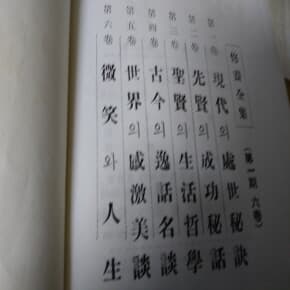 修養全集
(第一期 六卷)
第一卷 現代의 處世秘訣
第二卷 先賢의 成功秘話
第三卷 聖賢의 生活哲學
第四卷 古今의 逸話名談
第五卷 世界의 感激美談
第六卷 微笑와 人生